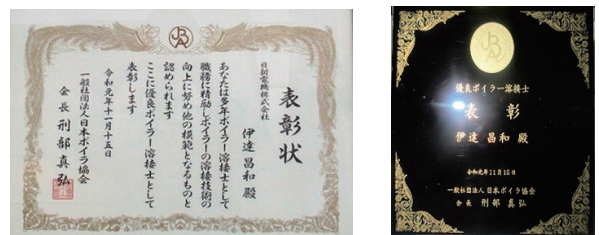 表彰状
日新電機株式会社
伊達 昌和 殿
あなたは多年ボイラー溶接士として
職務に精励しボイラーの溶接技術の
向上に努め他の模範となるものと
認められます
ここに優良ボイラー溶接士として
表彰します
令和元年十一月十五日
一般社団法人日本ボイラ協会
会長 刑部真弘
優良ボイラー溶接士
表彰
伊達 昌和 殿
令和元年11月15日
一般社団法人 日本ボイラ協会
会長 刑部 真弘